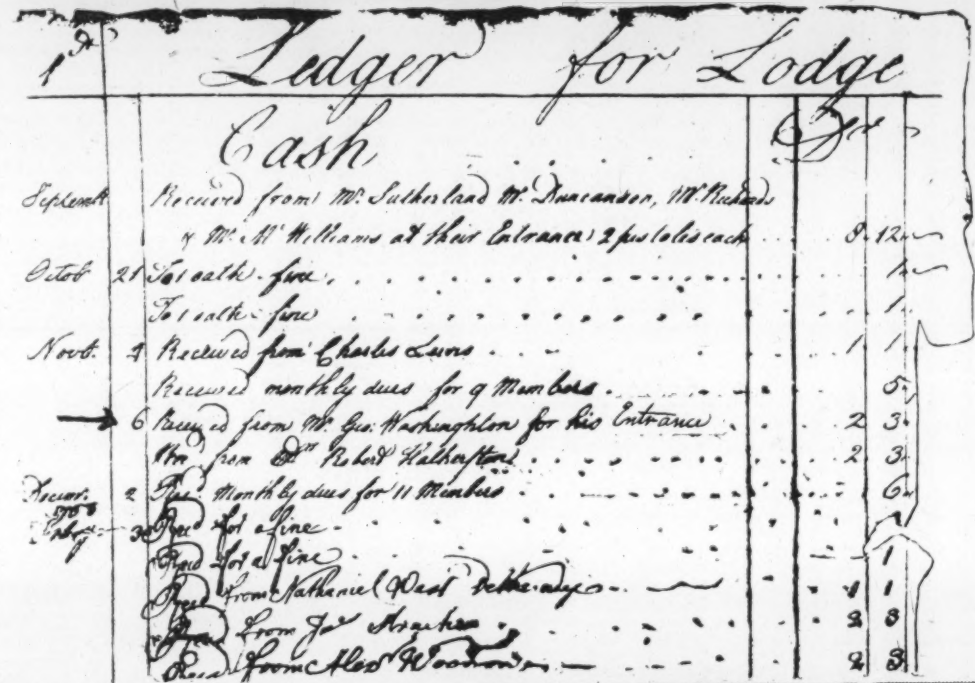 1st Ledger for Lodge
Cash Dr
Septembr Received from Mr. Sutherland Mr. Duncanson, Mr. Richards
& Mr. McWilliams at their Entrance 2 pistoles each 8 12
Octob 21 To 1 oath fine 1
To 1 oath fine 1
Novbr. 4 Received from Charles Lewis 1 1
Received monthly dues for 9 Members 5
6 Received from Mr. Geo. Washinghton for his Entrance 2 3
from Robert 2 3
Decmr. 2 Monthly dues for 11 Members 6
for a fine
for a fine 1
from Nathaniel West 1 1
from 2 3
from Alexr 2 3